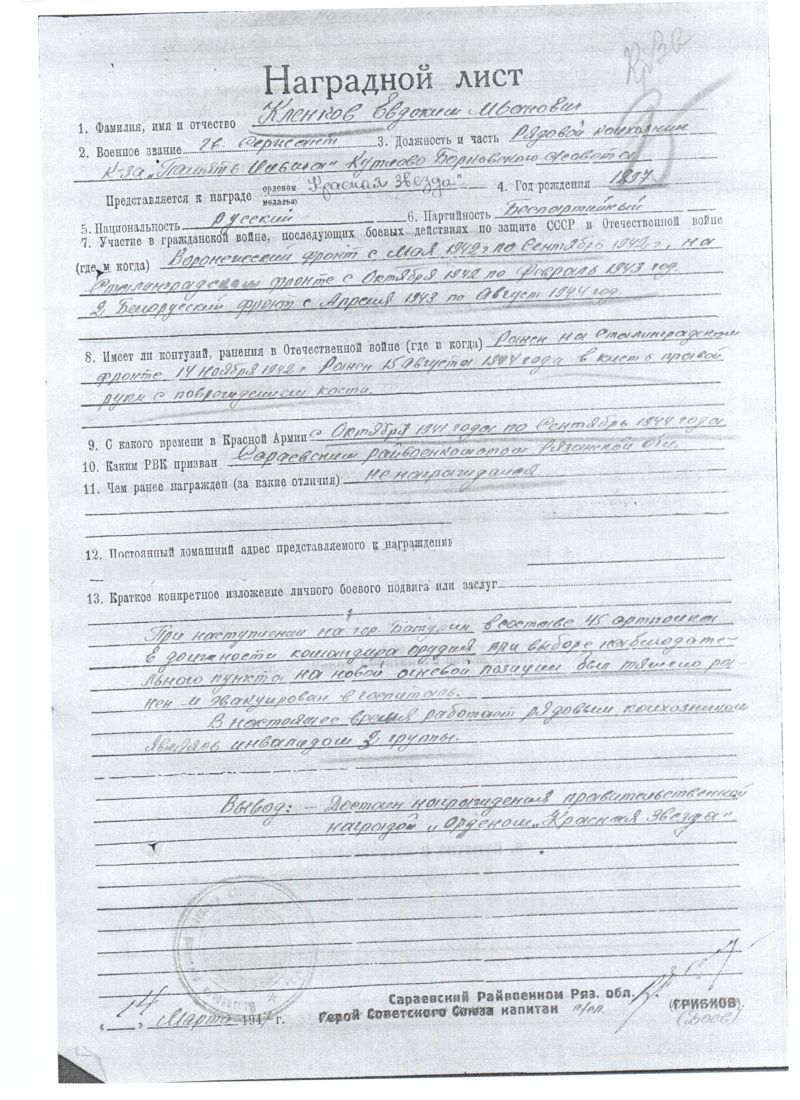 Кр Зв
Наградной лист
1. Фамилия, имя и отчество Кленков Евдоким Иванович
2. Военное звание гв. Сержант 3. Должность и часть Рядовой колхозник
К-за „Память Ильича" Кутлово Борковского с/совета
Представляется к награде орденом медалью Красная Звезда" 4. Год рождения
5. Национальность русский 6. Партийность Беспартийный
7. Участие в гражданской войне, последующих боевых действиях по защите СССР и Отечественной войне
(где и когда) Воронежский фронт с Мая 1942г по Сентябрь 1942г, на
Сталинградском фронте с Октября 1942 по Февраль 1943 год.
2 Белорусский фронт с Апреля 1943 по Август 1944 год.
8. Имеет ли контузий, ранения в Отечественной войне (где и когда) Ранен на Сталинградском
фронте 14 Ноября 1942 г Ранен 15 Августа 1944 года в кисть правой
руки с повреждением кости.
9. С какого времени в Красной Армии с Октября 1941 года по Сентябрь 1944 года
10. Каким РВК призван Сараевским райвоенкоматом Рязанской обл.
11. Чем ранее награжден (за какие отличия) не награждался
12. Постоянный домашний адрес представляемого к награждению
13. Краткое конкретное изложение личного боевого подвига или заслуг
При наступлении на гор. Батурин в составе 45 артполка
в должности командира орудия при выборе наблюдате-
льного пункта на новой огневой позиции был тяжело ра-
нен и эвакуирован в госпиталь.
В настоящее время работает рядовым колхозником
являясь инвалидом 2 группы.
Вывод: – Достоин награждения правительственной
наградой „Орденом „Красная Звезда"
Сараевский Райвоенком Ряз. обл.
„14" Марта 194 г. Герой Советского Союза капитан п/пл. (ГРИБКОВ).